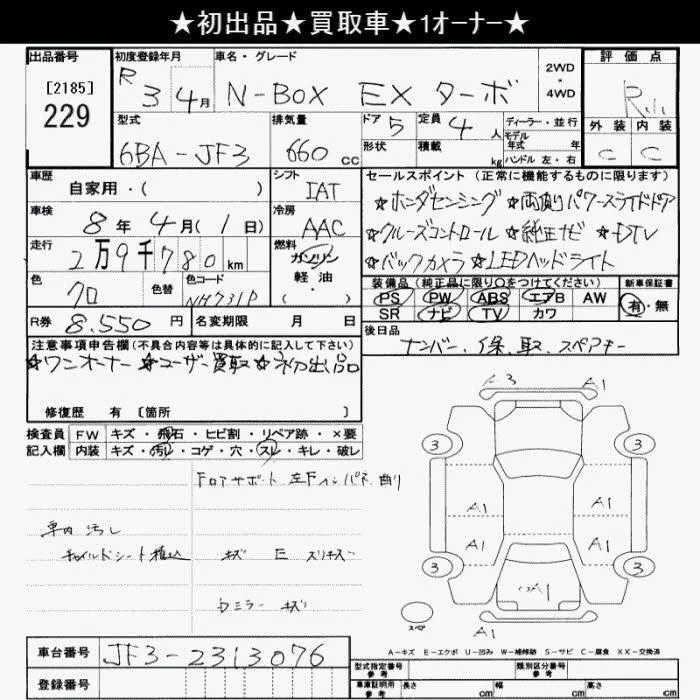 ★初出品★買取車★1ｵｰﾅｰ★
出品番号 初度登録年月 車名・グレード 2WD・4WD 評価点
[2185]
229
R 3 4月 N-BOX EX ターボ
外装 内装
C C
型式 排気量 ドア 5 定員 4 人 ディーラー・並行
6BA-JF3 660 cc 形状 積載 kg モデル年式 年
ハンドル 左・右
車歴 自家用・( )
シフト IAT
セールスポイント (正常に機能するものに限ります)
車検 8年 4月 (1日)
冷房 AAC
★ホンダセンシング ★両側パワースライドドア
★クルーズコントロール ★純正ナビ ★DTV
★バックカメラ ★LEDヘッドライト
走行 2万9千780km
燃料 ガソリン 軽油・( )
色 クロ 色替 色コード NH731P
装備品 (純正品に限り○をつけてください) 新車保証書
PS PW ABS エアB AW 有・無
SR ナビ TV カワ
R券 8.550円 名変期限 月 日
後日品
ナンバー、保、取、スペアキー
注意事項申告欄 (不具合内容等は具体的に記入して下さい)
★ワンオーナー ★ユーザー買取 ★初出品
修復歴 有 [箇所 ]
検査員記入欄 FW キズ・飛石・ヒビ割・リペア跡・×要
内装 キズ・汚レ・コゲ・穴・スレ・キレ・破レ
Fロアサポート 左Fインパネ 曲り
車内 汚レ
チャイルドシート
キズ E スリキズ
Dミラー キズ
A3 A1
3 3
A1 A1
A1 A1
3 3
A1
スペア
A-キズ E-エクボ U-凹み W-補修跡 S-サビ C-腐食 XX-交換済
車台番号 JF3-2313076
登録番号
型式指定番号 参考 類別区分番号 参考
車庫証明用 参考 長さ cm 幅 cm 高さ cm